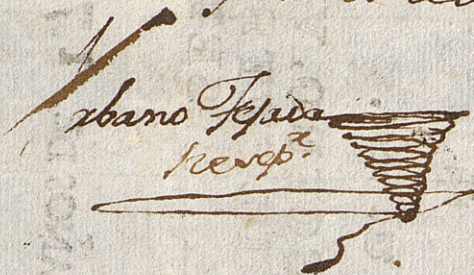 Urbano Tejada
Recep.r